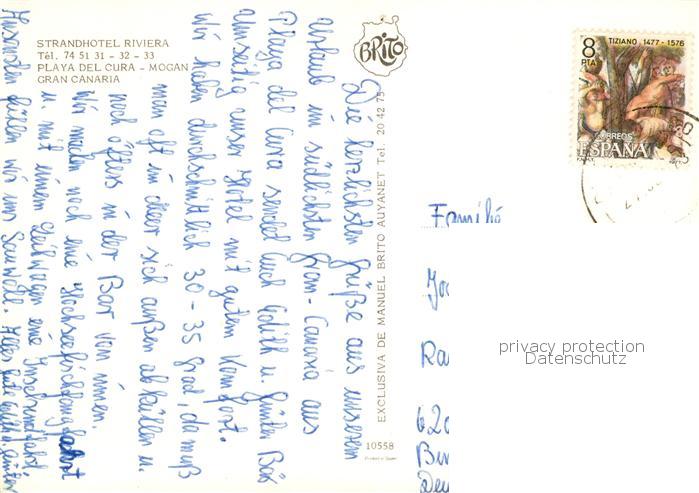 STRANDHOTEL RIVIERA
Tél. 74 51 31 - 32 - 33
PLAYA DEL CURA - MOGAN
GRAN CANARIA
BRITO
8
PTAS
TIZIANO, 1477 - 1576
CORREOS
ESPAÑA
Die herzlichsten Grüße aus unserem
Urlaub im südlichsten Gran-Canaria aus
Playa del Cura sendet Euch Edith u. Günter
umseitig unser Hotel mit gutem Komfort.
Wir haben durchschnittlich 30-35 grad, da muß
man oft im Meer sich außen abkühlen u.
noch öfters in der Bar von innen.
Wir machen noch eine
u. mit einem Leihwagen eine Inselrundfahrt.
Ansonsten fühlen wir uns Sauwohl. Alles Gute Edith u. Günter
EXCLUSIVA DE MANUEL BRITO AUYANET Tel. 20 42 75
10558
Printed in Spain
Familie
privacy protection
Datenschutz